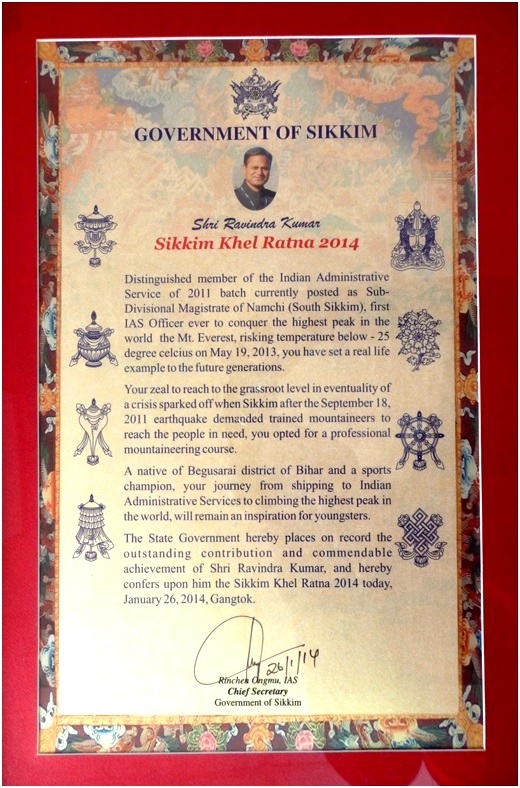 GOVERNMENT OF SIKKIM
Shri Ravindra Kumar
Sikkim Khel Ratna 2014
Distinguished member of the Indian Administrative
Service of 2011 batch currently posted as Sub-
Divisional Magistrate of Namchi (South Sikkim), first
IAS Officer ever to conquer the highest peak in the
world the Mt. Everest, risking temperature below - 25
degree celcius on May 19, 2013, you have set a real life
example to the future generations.
Your zeal to reach to the grassroot level in eventuality of
a crisis sparked off when Sikkim after the September 18,
2011 earthquake demanded trained mountaineers to
reach the people in need, you opted for a professional
mountaineering course.
A native of Begusarai district of Bihar and a sports
champion, your journey from shipping to Indian
Administrative Services to climbing the highest peak in
the world, will remain an inspiration for youngsters.
The State Government hereby places on record the
outstanding contribution and commendable
achievement of Shri Ravindra Kumar, and hereby
confers upon him the Sikkim Khel Ratna 2014 today,
January 26, 2014, Gangtok.
26/1/14
Rinchen Ongmu, IAS
Chief Secretary
Government of Sikkim